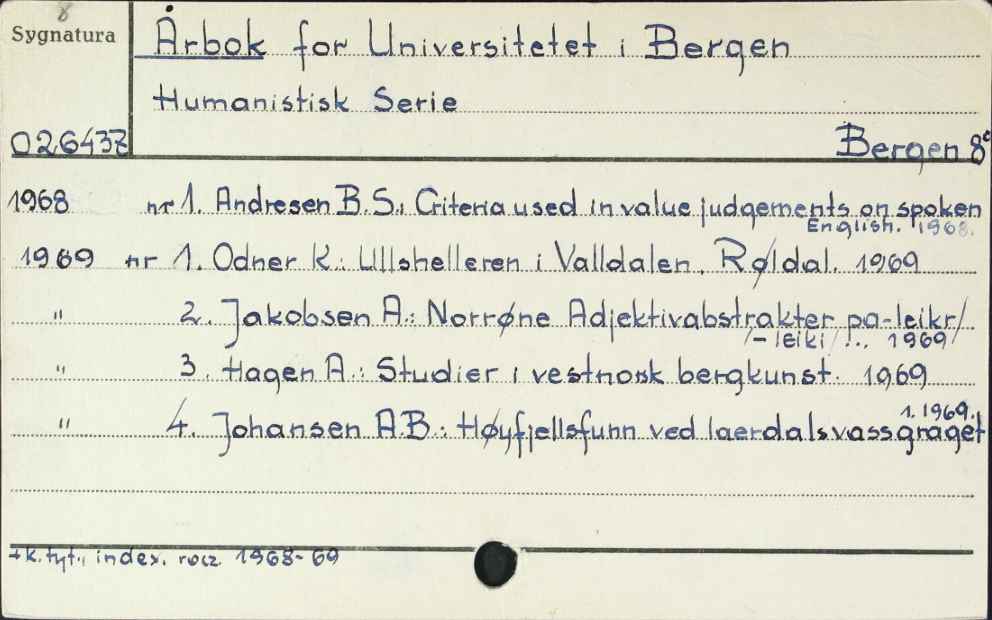 8
Sygnatura
Årbok for Universitetet i Bergen
Humanistisk Serie
026437 Bergen 8°
1968 nr 1. Andresen B.S.: Criteria used in value judgements on spoken
English. 1968.
1969 nr 1. Odner K.: Ullshelleren i Valldalen. Røldal. 1969
" 2. Jakobsen A.: Norrøne Adjektivabstrakter pa-leikr/
/-leiki/... 1969/
" 3. Hagen A.: Studier i vestnorsk bergkunst. 1969
" 4. Johansen A.B.: Høyfjellsfunn ved laerdalsvassgraget
1. 1969.
+k. tyt., index. rocz. 1968-69